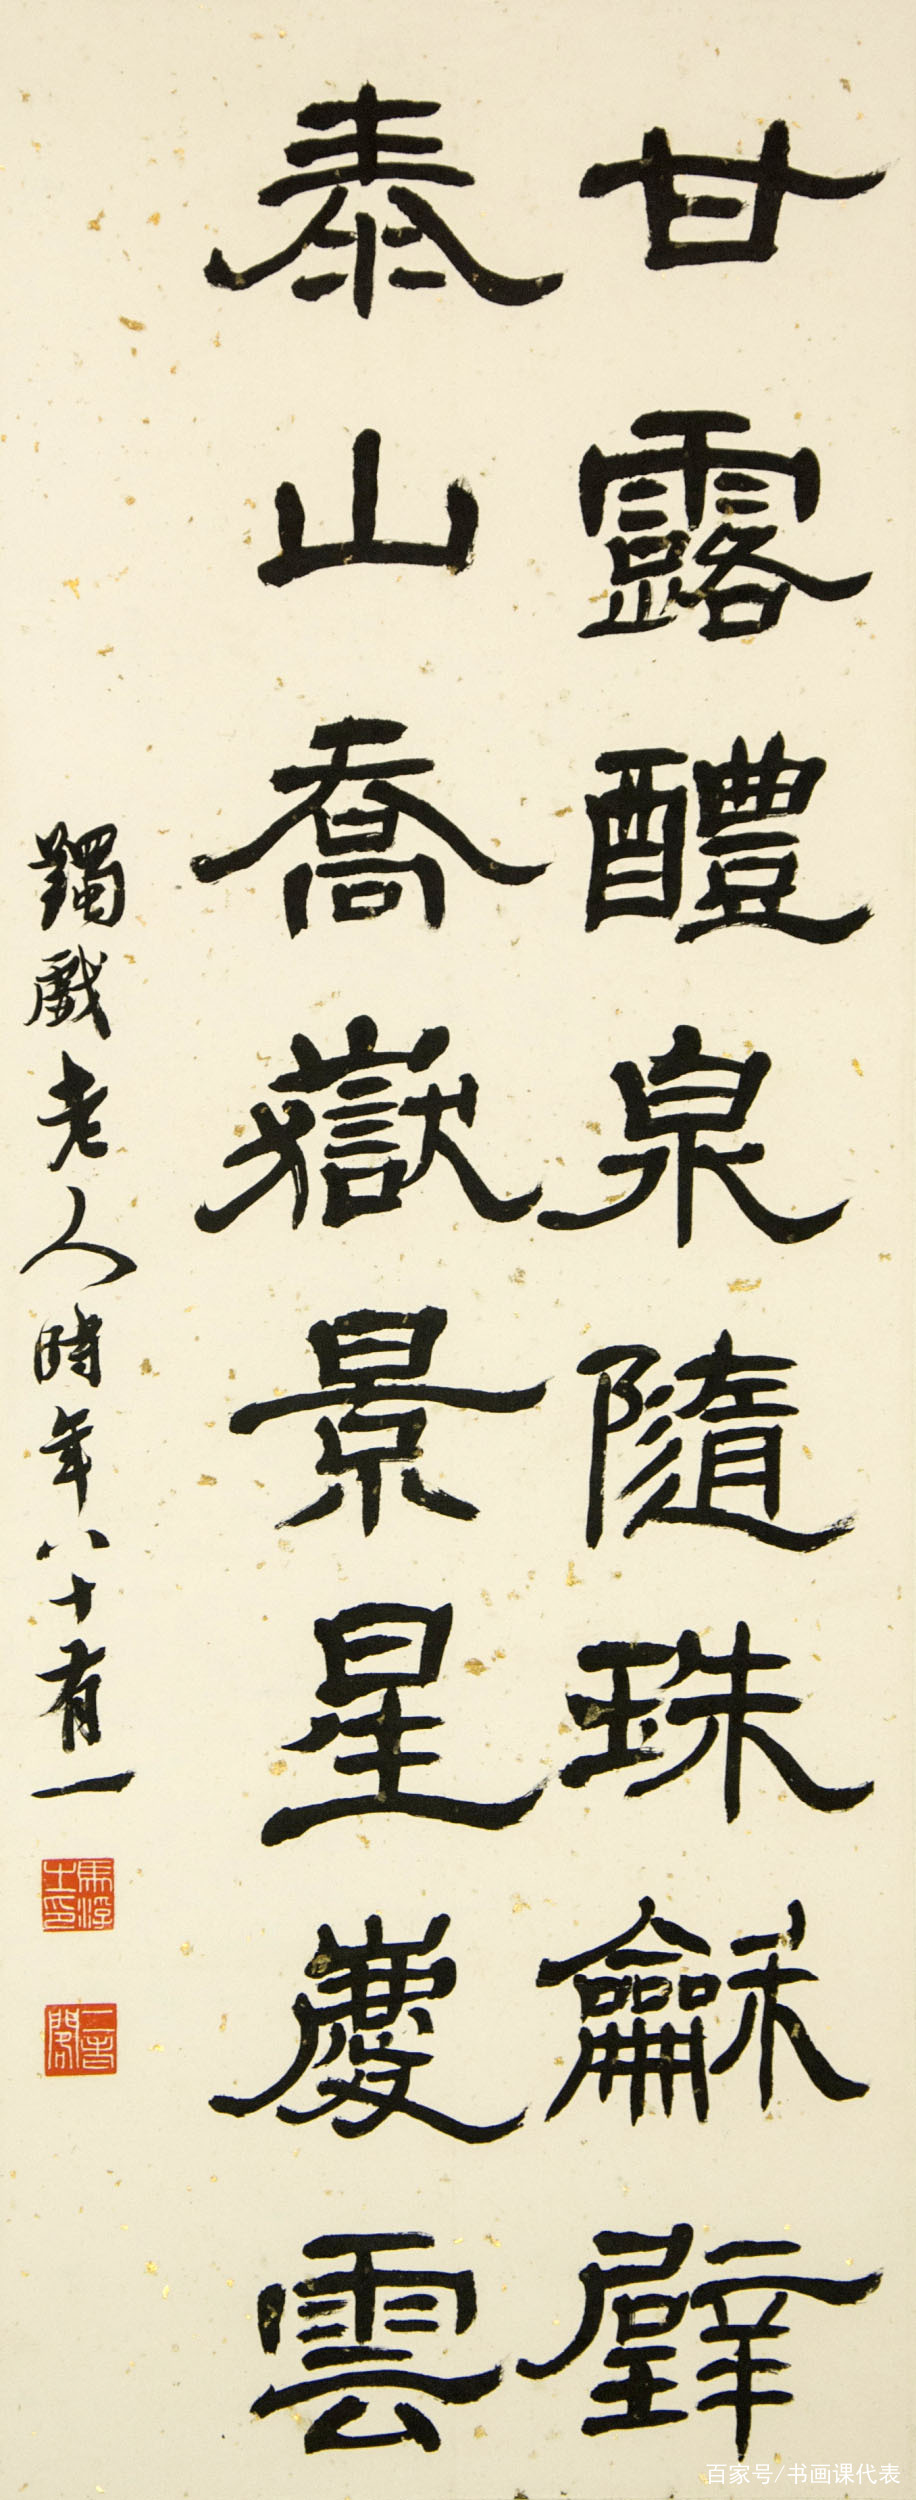 甘露醴泉隨珠龢璧
泰山喬嶽景星慶雲
蠲戲老人時年八十有一
馬浮之印
百家号/书画课代表